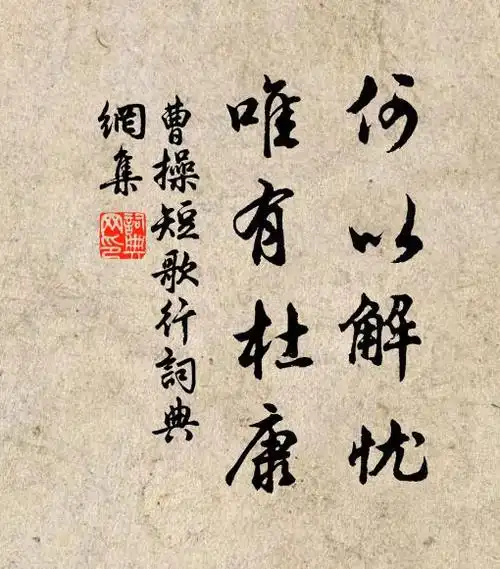 何以解忧
唯有杜康
曹操短歌行詞典
網集
詞典网印